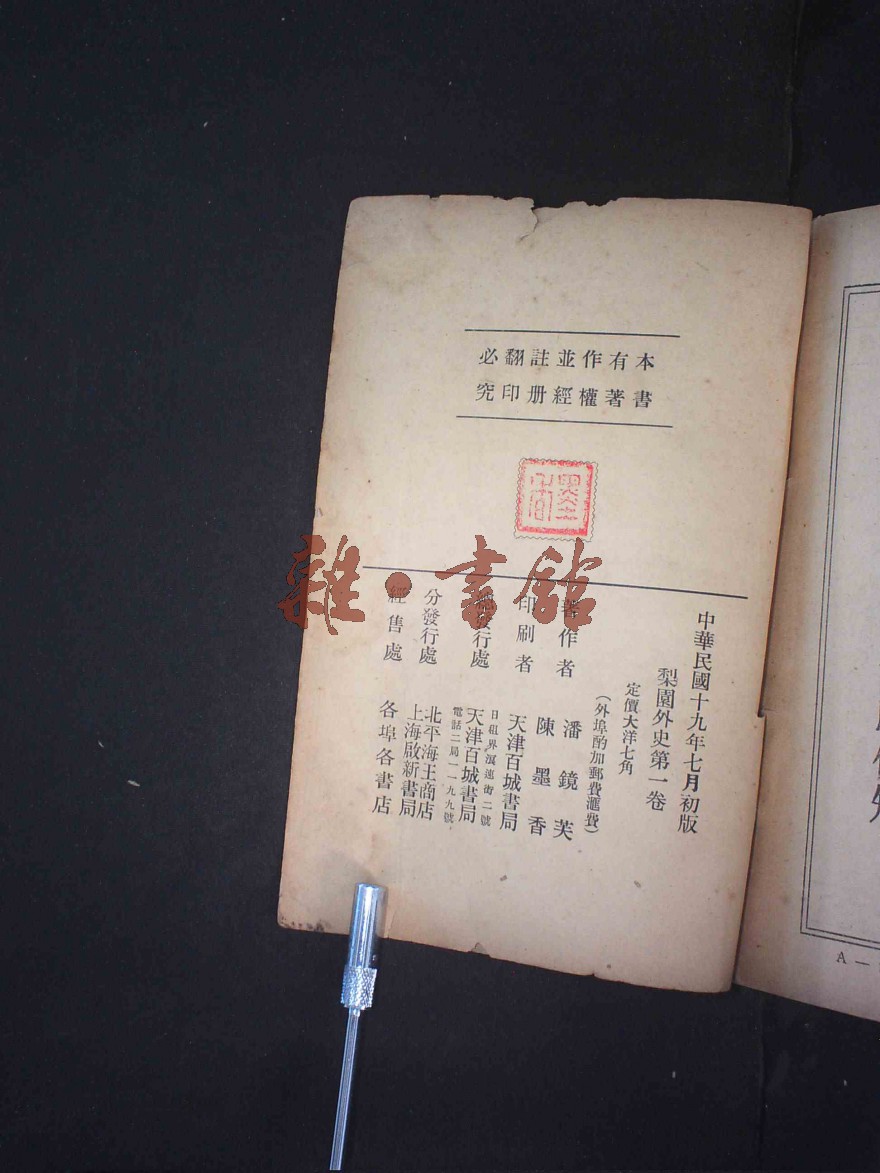 本書有著作權並經註册翻印必究
中華民國十九年七月初版
梨園外史第一卷
定價大洋七角
(外埠酌加郵費滙費)
著作者 潘鏡芙
陳墨香
印刷者 天津百城書局
總發行處 天津百城書局
日租界溟速街二號
電話二局一一九九號
分發行處 北平海王商店
上海啟新書局
經售處 各埠各書店
雜·書館
A—